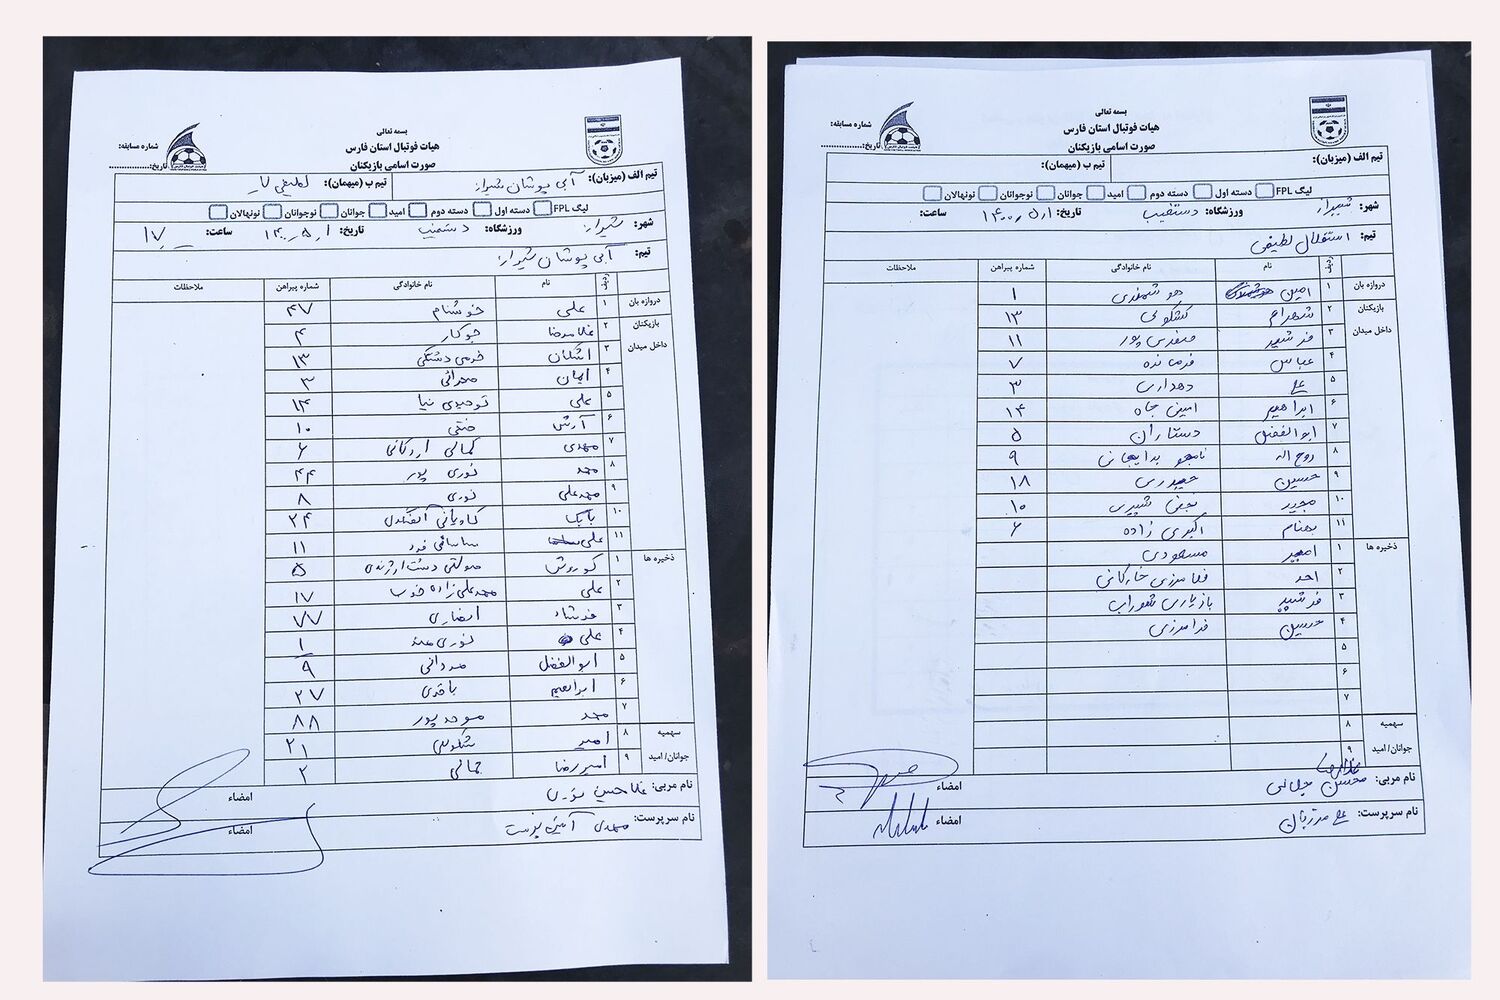 بسمه تعالی
هیات فوتبال استان فارس
صورت اسامی بازیکنان
شماره مسابقه:
تاریخ:
تیم الف (میزبان): آبی پوشان شیراز تیم ب (میهمان):
لیگ FPL دسته اول دسته دوم امید جوانان نوجوانان نونهالان
شهر: شیراز ورزشگاه: تاریخ: ۱۴۰۰/۵/۱ ساعت: ۱۷
تیم: آبی پوشان شیراز
ردیف نام نام خانوادگی شماره پیراهن ملاحظات
دروازه بان ۱ علی خوشنام ۴۷
بازیکنان ۲ غلامرضا جوکار ۴
داخل میدان ۳ اشکان خرمی دشتکی ۱۳
۴ ایمان صحرائی ۳
۵ علی توحیدی نیا ۱۴
۶ آرش ۱۰
۷ مهدی کمالی اردکانی ۶
۸ محمد نوری پور ۴۴
۹ محمدعلی نوری ۸
۱۰ بابک کاویانی ۲۴
۱۱ علی ساسانی فرد ۱۱
ذخیره ها ۱ کوروش صولتی دشت ارژندی ۵
۲ علی محمدعلی زاده ۱۷
۳ فرشاد انصاری ۷۷
۴ علی نوری ۱
۵ ابوالفضل مردانی ۹
۶ ابراهیم باقری ۲۷
۷ محمد موحد پور ۸۸
سهمیه ۸ امیر ۲۱
جوانان/ امید ۹ امیررضا جمالی ۲
نام مربی: غلامحسین نوری امضاء
نام سرپرست: مهدی امضاء
بسمه تعالی
هیات فوتبال استان فارس
صورت اسامی بازیکنان
شماره مسابقه:
تاریخ:
تیم الف (میزبان): تیم ب (میهمان):
لیگ FPL دسته اول دسته دوم امید جوانان نوجوانان نونهالان
شهر: شیراز ورزشگاه: دستغیب تاریخ: ۱۴۰۰/۵/۱ ساعت:
تیم: استقلال لطیفی
ردیف نام نام خانوادگی شماره پیراهن ملاحظات
دروازه بان ۱ امین هوشمندی ۱
بازیکنان ۲ شهرام کشکولی ۱۳
داخل میدان ۳ فرشید پور ۱۱
۴ عباس فرمانده ۷
۵ علی دهداری ۳
۶ ابراهیم امینی جاه ۱۴
۷ ابوالفضل دستاران ۵
۸ روح اله نامجو ۹
۹ حسین حیدری ۱۸
۱۰ ۱۰
۱۱ بهنام اکبری زاده ۶
ذخیره ها ۱ امیر مسعودی
۲ احمد فرامرزی خارکانی
۳ فرشید بازیاری
۴ حسین فرامرزی
۵
۶
۷
سهمیه ۸
جوانان/ امید ۹
نام مربی: محسن امضاء
نام سرپرست: علی مرزبان امضاء